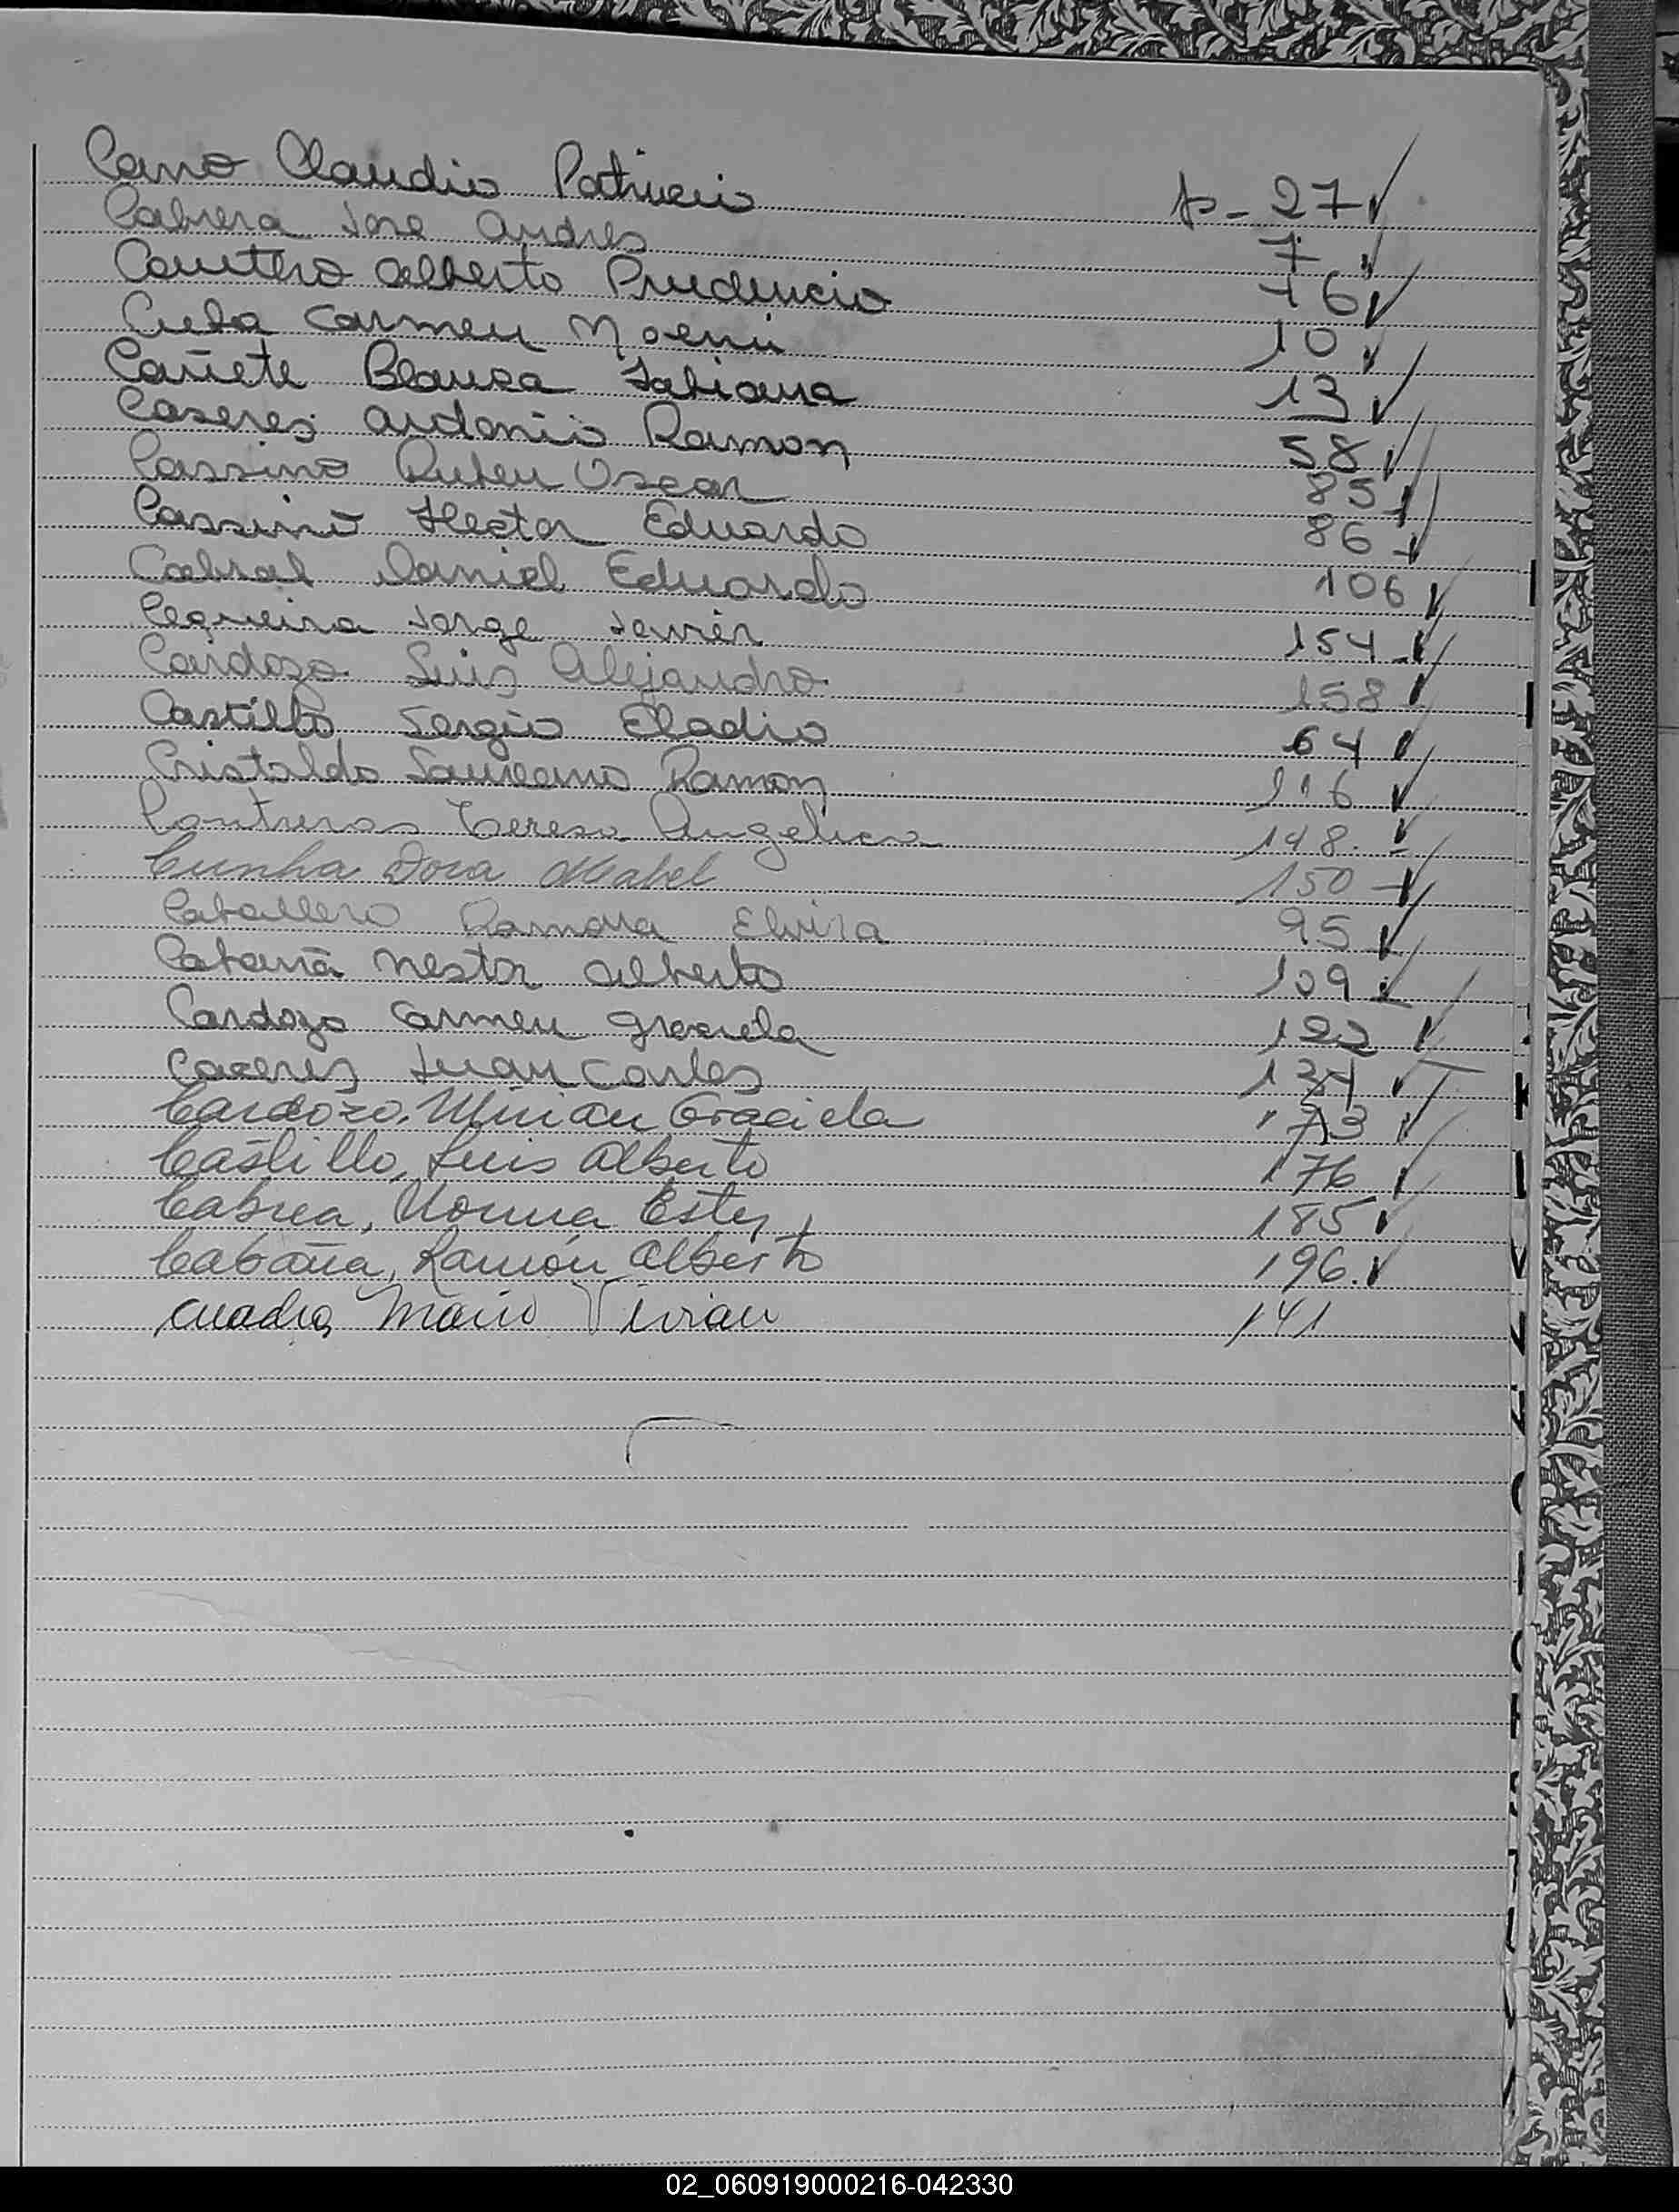 Cano Claudio Patricio 27
Cabrera Jose Andres 7
Alberto Prudencio 76
Cuba Carmen Noemi 10
Cañete Blanca Fabiana 13
Caseres Antonio Ramon 58
Cassino Ruben Oscar 85
Cassino Hector Eduardo 86
Cabral Daniel Eduardo 106
Cequeira Jorge Javier 154
Cardozo Luis Alejandro 158
Castillo Sergio Eladio 64
Cristaldo Laureano Ramon 116
Contreras Teresa Angelica 148.
Cunha Dora Mabel 150
Caballero Ramona Elvira 95
Cabaña Nestor Alberto 109
Cardozo Carmen Graciela 122
Caceres Juan Carlos 134
Cardozo, Mirian Graciela 173
Castillo, Luis Alberto 176
Norma Ester 185
Cabaña, Ramón Alberto 196.
Cuadra Mario Vivian 141
02_060919000216-042330